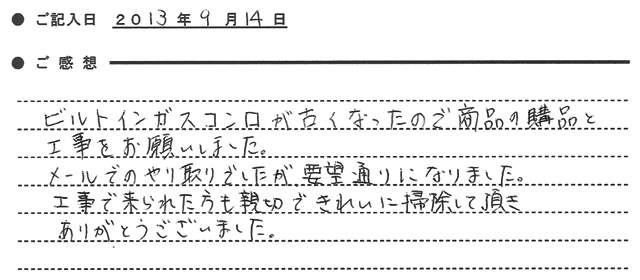 ● ご記入日 2013年9月14日
● ご感想
ビルトインガスコンロが古くなったので商品の購品と
工事をお願いしました。
メールでのやり取りでしたが要望通りになりました。
工事で来られた方も親切できれいに掃除して頂き
ありがとうございました。